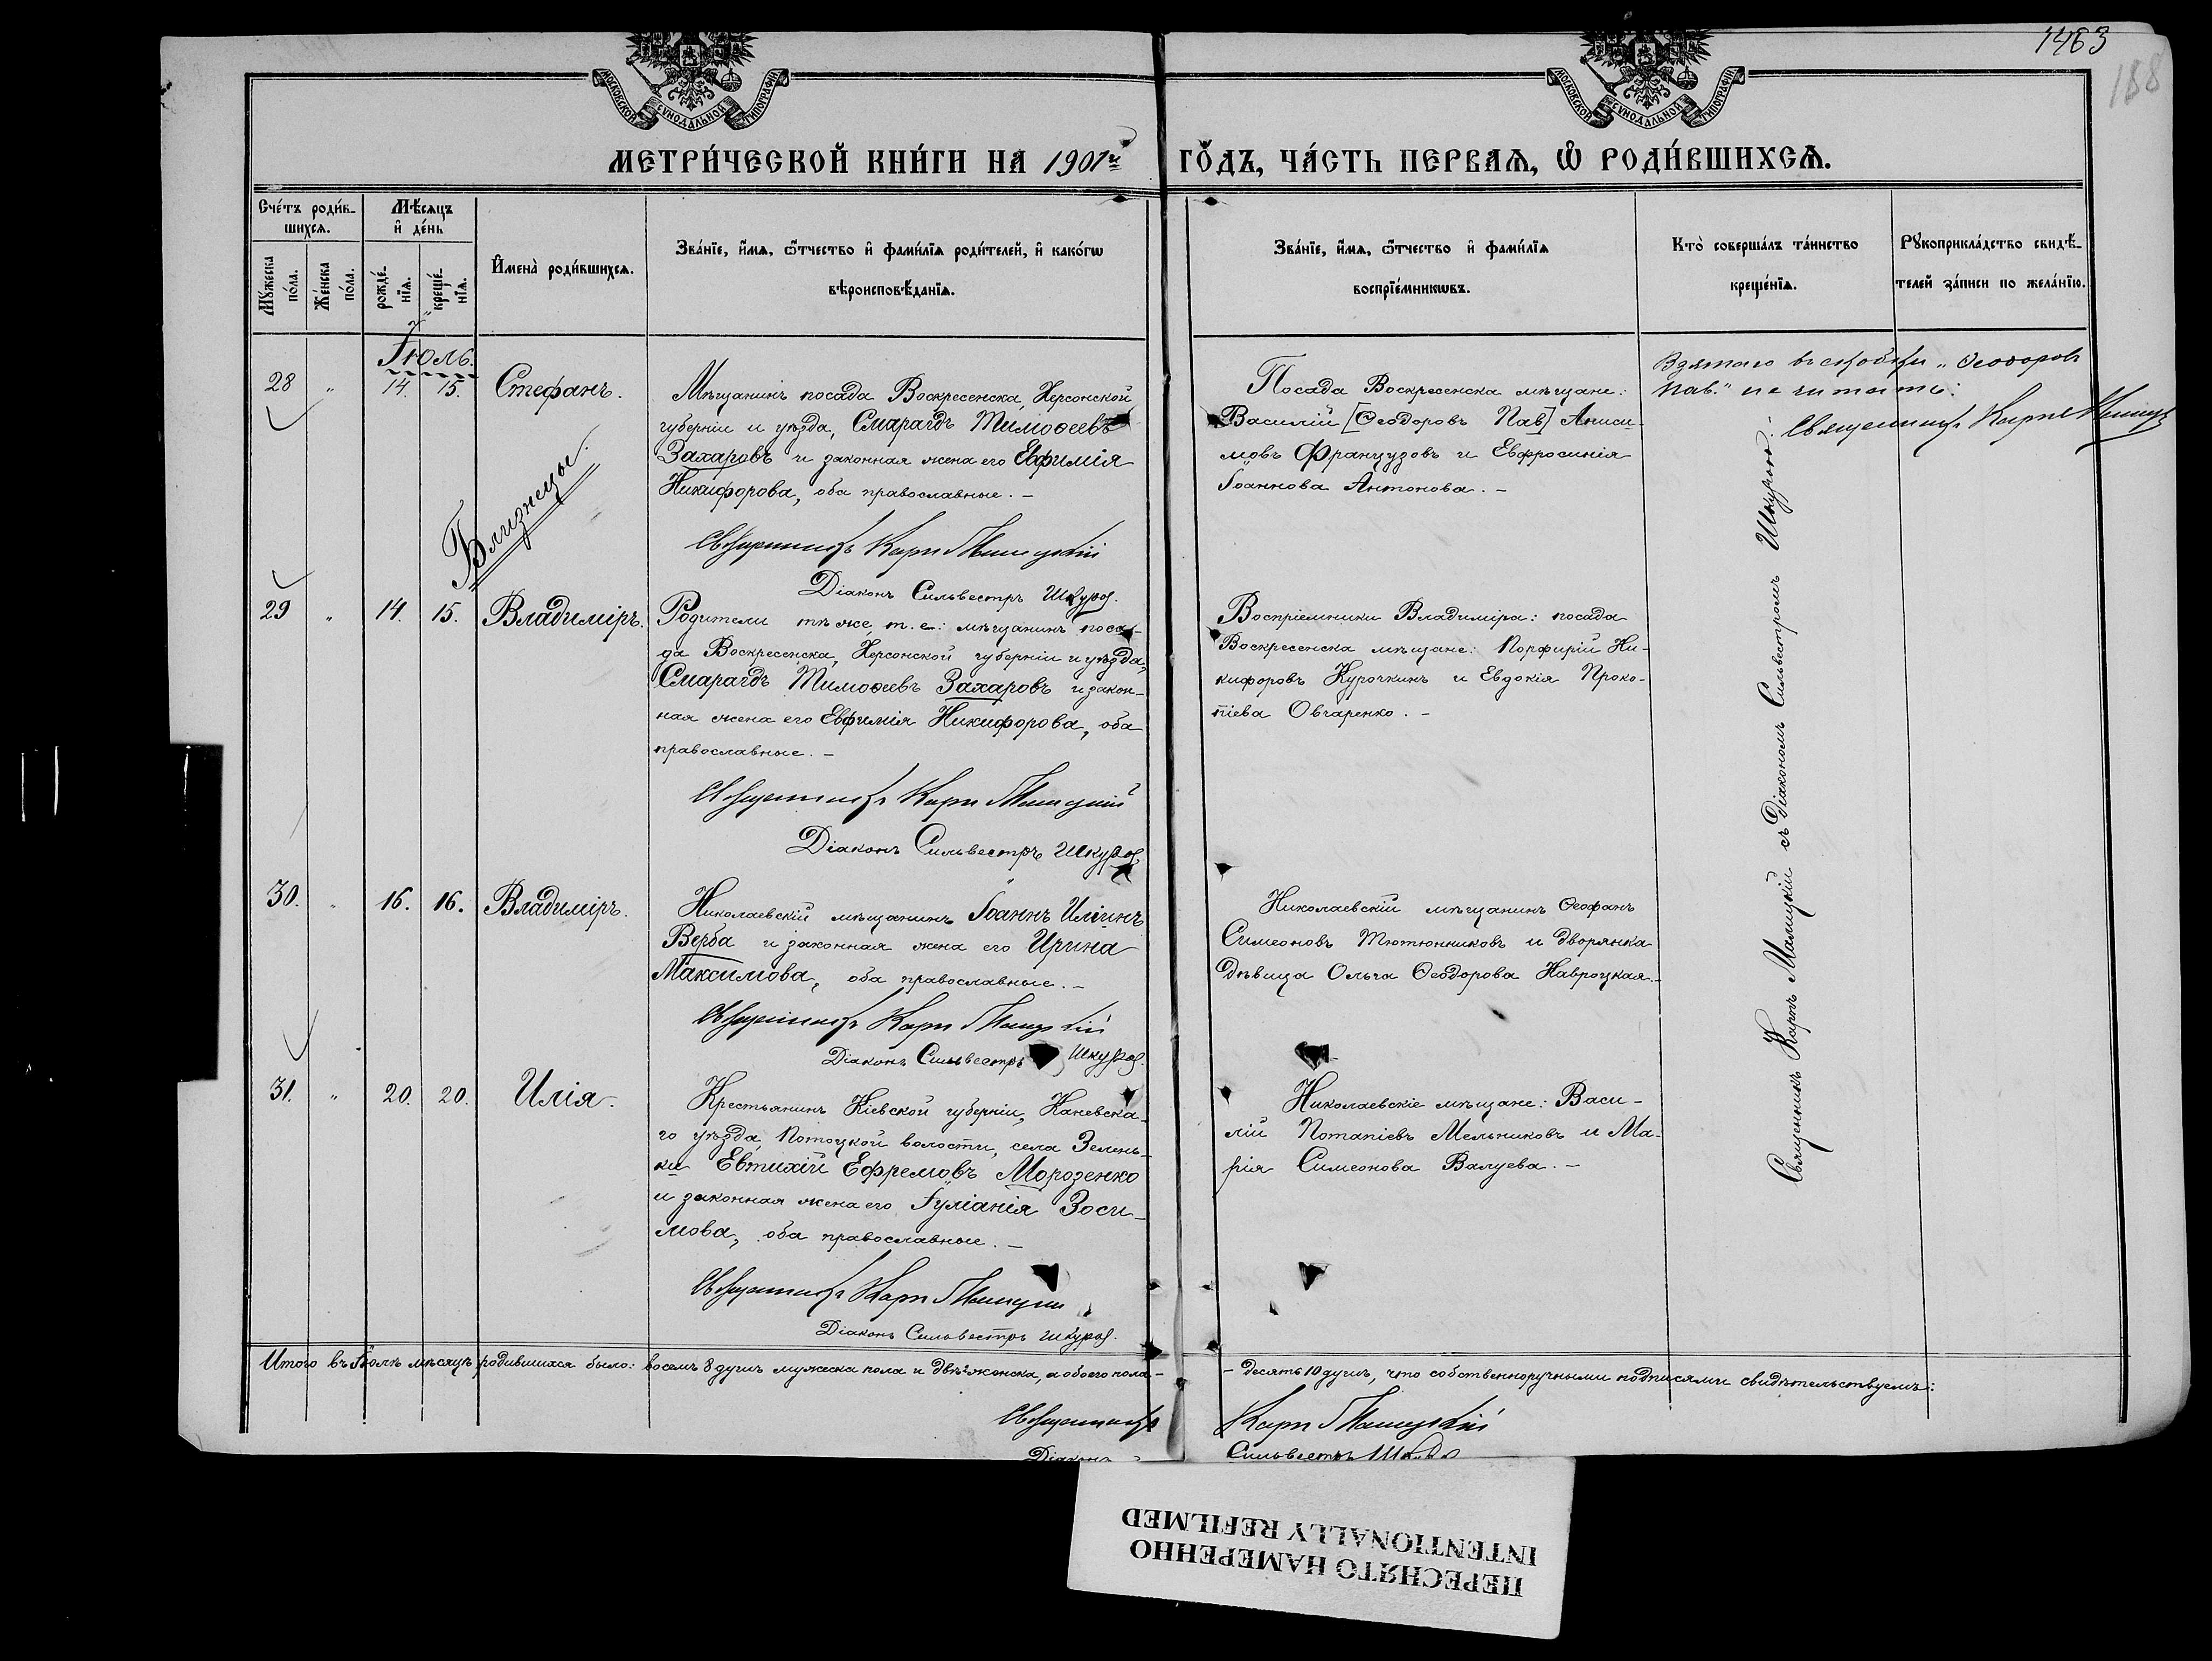 1463
188
МОСКОВСКОЙ СУНОДАЛЬНОЙ ТИПОГРАФІИ
МОСКОВСКОЙ СУНОДАЛЬНОЙ ТИПОГРАФІИ
МЕТРИ́ЧЕСКОЙ КНИ́ГИ НА 1901й ГО́ДЪ, ЧА́СТЬ ПЕРВАѦ, Ѡ҆ РОДИ́ВШИХСѦ.
Сче́тъ роди́в-
шихсѧ.
Му́жеска
по́ла.
Же́нска
по́ла.
Мѣ́сѧцъ
и҆ де́нь
рожде́-
нїѧ.
креще́-
нїѧ.
И҆мена̀ роди́вшихсѧ.
Зва́нїе, и҆́мѧ, ѻ҆́тчество и҆ фами́лїѧ роди́телей, и҆ како́гѡ
вѣроисповѣ́данїѧ.
Зва́нїе, и҆́мѧ, ѻ҆́тчество и҆ фами́лїѧ
воспрїе́мникѡвъ.
Кто̀ соверша́лъ та́инство
креще́нїѧ.
Рꙋкоприкла́дство свидѣ́-
телей за́писи по жела́нїю.
Іюль.
28 " 14. 15. Стефанъ.
Мѣщанинъ посада Воскресенска, Херсонской
губерніи и уѣзда, Смарагдъ Тимоѳеевъ
Захаровъ и законная жена его Евфимія
Никифорова, оба православные. –
Священникъ Карпъ Малицкій
Діаконъ Сильвестръ Шкуро.
Посада Воскресенска мѣщане:
Василій [Ѳеодоровъ Пав] Аниси-
мовъ Французовъ и Евфросинія
Іоаннова Антонова. –
Взятаго въ скобки „Ѳеодоровъ
Пав." не читать:
Священникъ Карпъ Малицкій
Близнецы.
29 " 14. 15. Владиміръ.
Родители тѣ же, т. е.: мѣщанинъ поса-
да Воскресенска, Херсонской губерніи и уѣзда,
Смарагдъ Тимоѳеевъ Захаровъ и закон-
ная жена его Евфимія Никифорова, оба
православные. –
Священникъ Карпъ Малицкій
Діаконъ Сильвестръ Шкуро.
Воспріемники Владиміра: посада
Воскресенска мѣщане: Порфирій Ни-
кифоровъ Курочкинъ и Евдокія Проко-
піева Овчаренко. –
30. " 16. 16. Владиміръ.
Николаевскій мѣщанинъ Іоаннъ Иліинъ
Верба и законная жена его Ирина
Максимова, оба православные. –
Священникъ Карпъ Малицкій
Діаконъ Сильвестръ Шкуро.
Николаевскій мѣщанинъ Ѳеофанъ
Симеоновъ Тютюнниковъ и дворянка
дѣвица Ольга Ѳеодорова Навроцкая. –
31. " 20. 20. Илія.
Крестьянинъ Кіевской губерніи, Каневска-
го уѣзда, Потоцкой волости, села Зелень-
ки Евтихій Ефремовъ Морозенко
и законная жена его Іуліанія Зоси-
мова, оба православные. –
Священникъ Карпъ Малицкій
Діаконъ Сильвестръ Шкуро.
Николаевскіе мѣщане: Васи-
лій Потапіевъ Мельниковъ и Ма-
рія Симеонова Валуева. –
Священникъ Карпъ Малицкій съ Діакономъ Сильвестромъ Шкурою.
Итого въ Іюлѣ мѣсяцѣ родившихся было: восемь 8 душъ мужеска пола и двѣ 2 женска, а обоего пола –
– десять 10 душъ, что собственноручными подписями свидѣтельствуемъ:
Священникъ Карпъ Малицкій
Діаконъ Сильвестръ Шкуро
ПЕРЕСНЯТО НАМЕРЕННО
INTENTIONALLY REFILMED